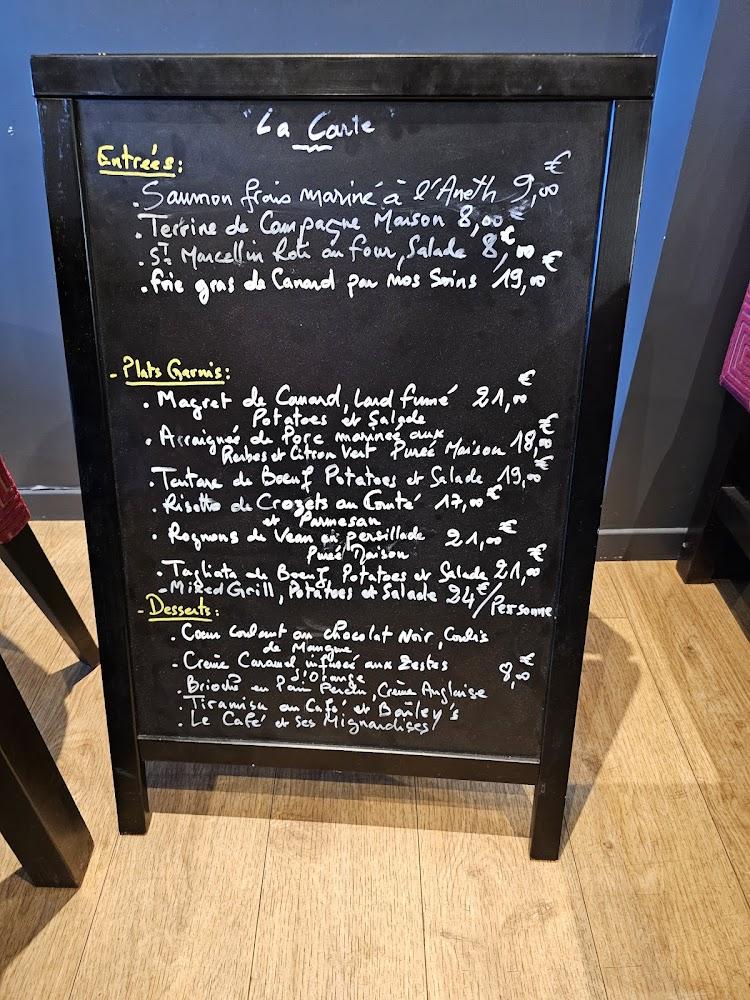 "La Carte"
Entrées:
. Saumon frais mariné à l'Aneth 9,00€
. Terrine de Campagne Maison 8,00€
. St Marcellin Roti au four, Salade 8,00€
. foie gras de Canard par nos Soins 19,00€
- Plats Garnis:
. Magret de Canard, Lard fumé 21,00€
Potatoes et Salade
. Arraignée de Porc marinée aux
Herbes et Citron Vert Purée Maison 18,00€
. Tartare de Boeuf Potatoes et Salade 19,00€
. Risotto de Crozets au Comté 17,00€
et Parmesan
. Rognons de Veau en persillade 21,00€
Purée Maison
. Tagliata de Boeuf, Potatoes et Salade 21,00€
- Mixed Grill, Potatoes et Salade 24€/Personne
- Desserts:
. Coeur coulant au chocolat Noir, Coulis
de Mangue
- Crème Caramel infusée aux Zestes
d'Orange 8,00€
. Brioche en Pain Perdu, Crème Anglaise
. Tiramisu au Café et Bailey's
. Le Café et ses Mignardises